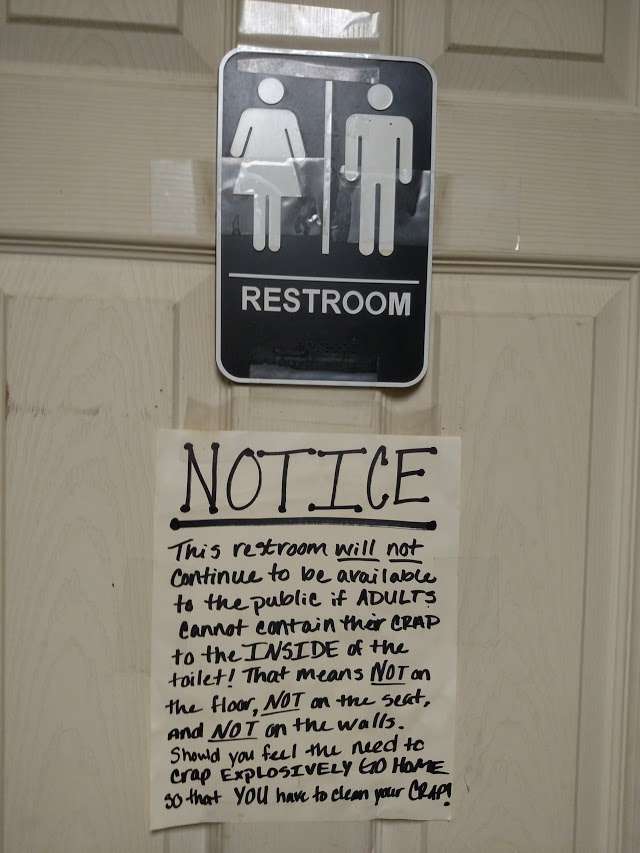 RESTROOM
NOTICE
This restroom will not
continue to be available
to the public if ADULTS
cannot contain their CRAP
to the INSIDE of the
toilet! That means NOT on
the floor, NOT on the seat,
and NOT on the walls.
Should you feel the need to
crap EXPLOSIVELY GO HOME
so that YOU have to clean your CRAP!